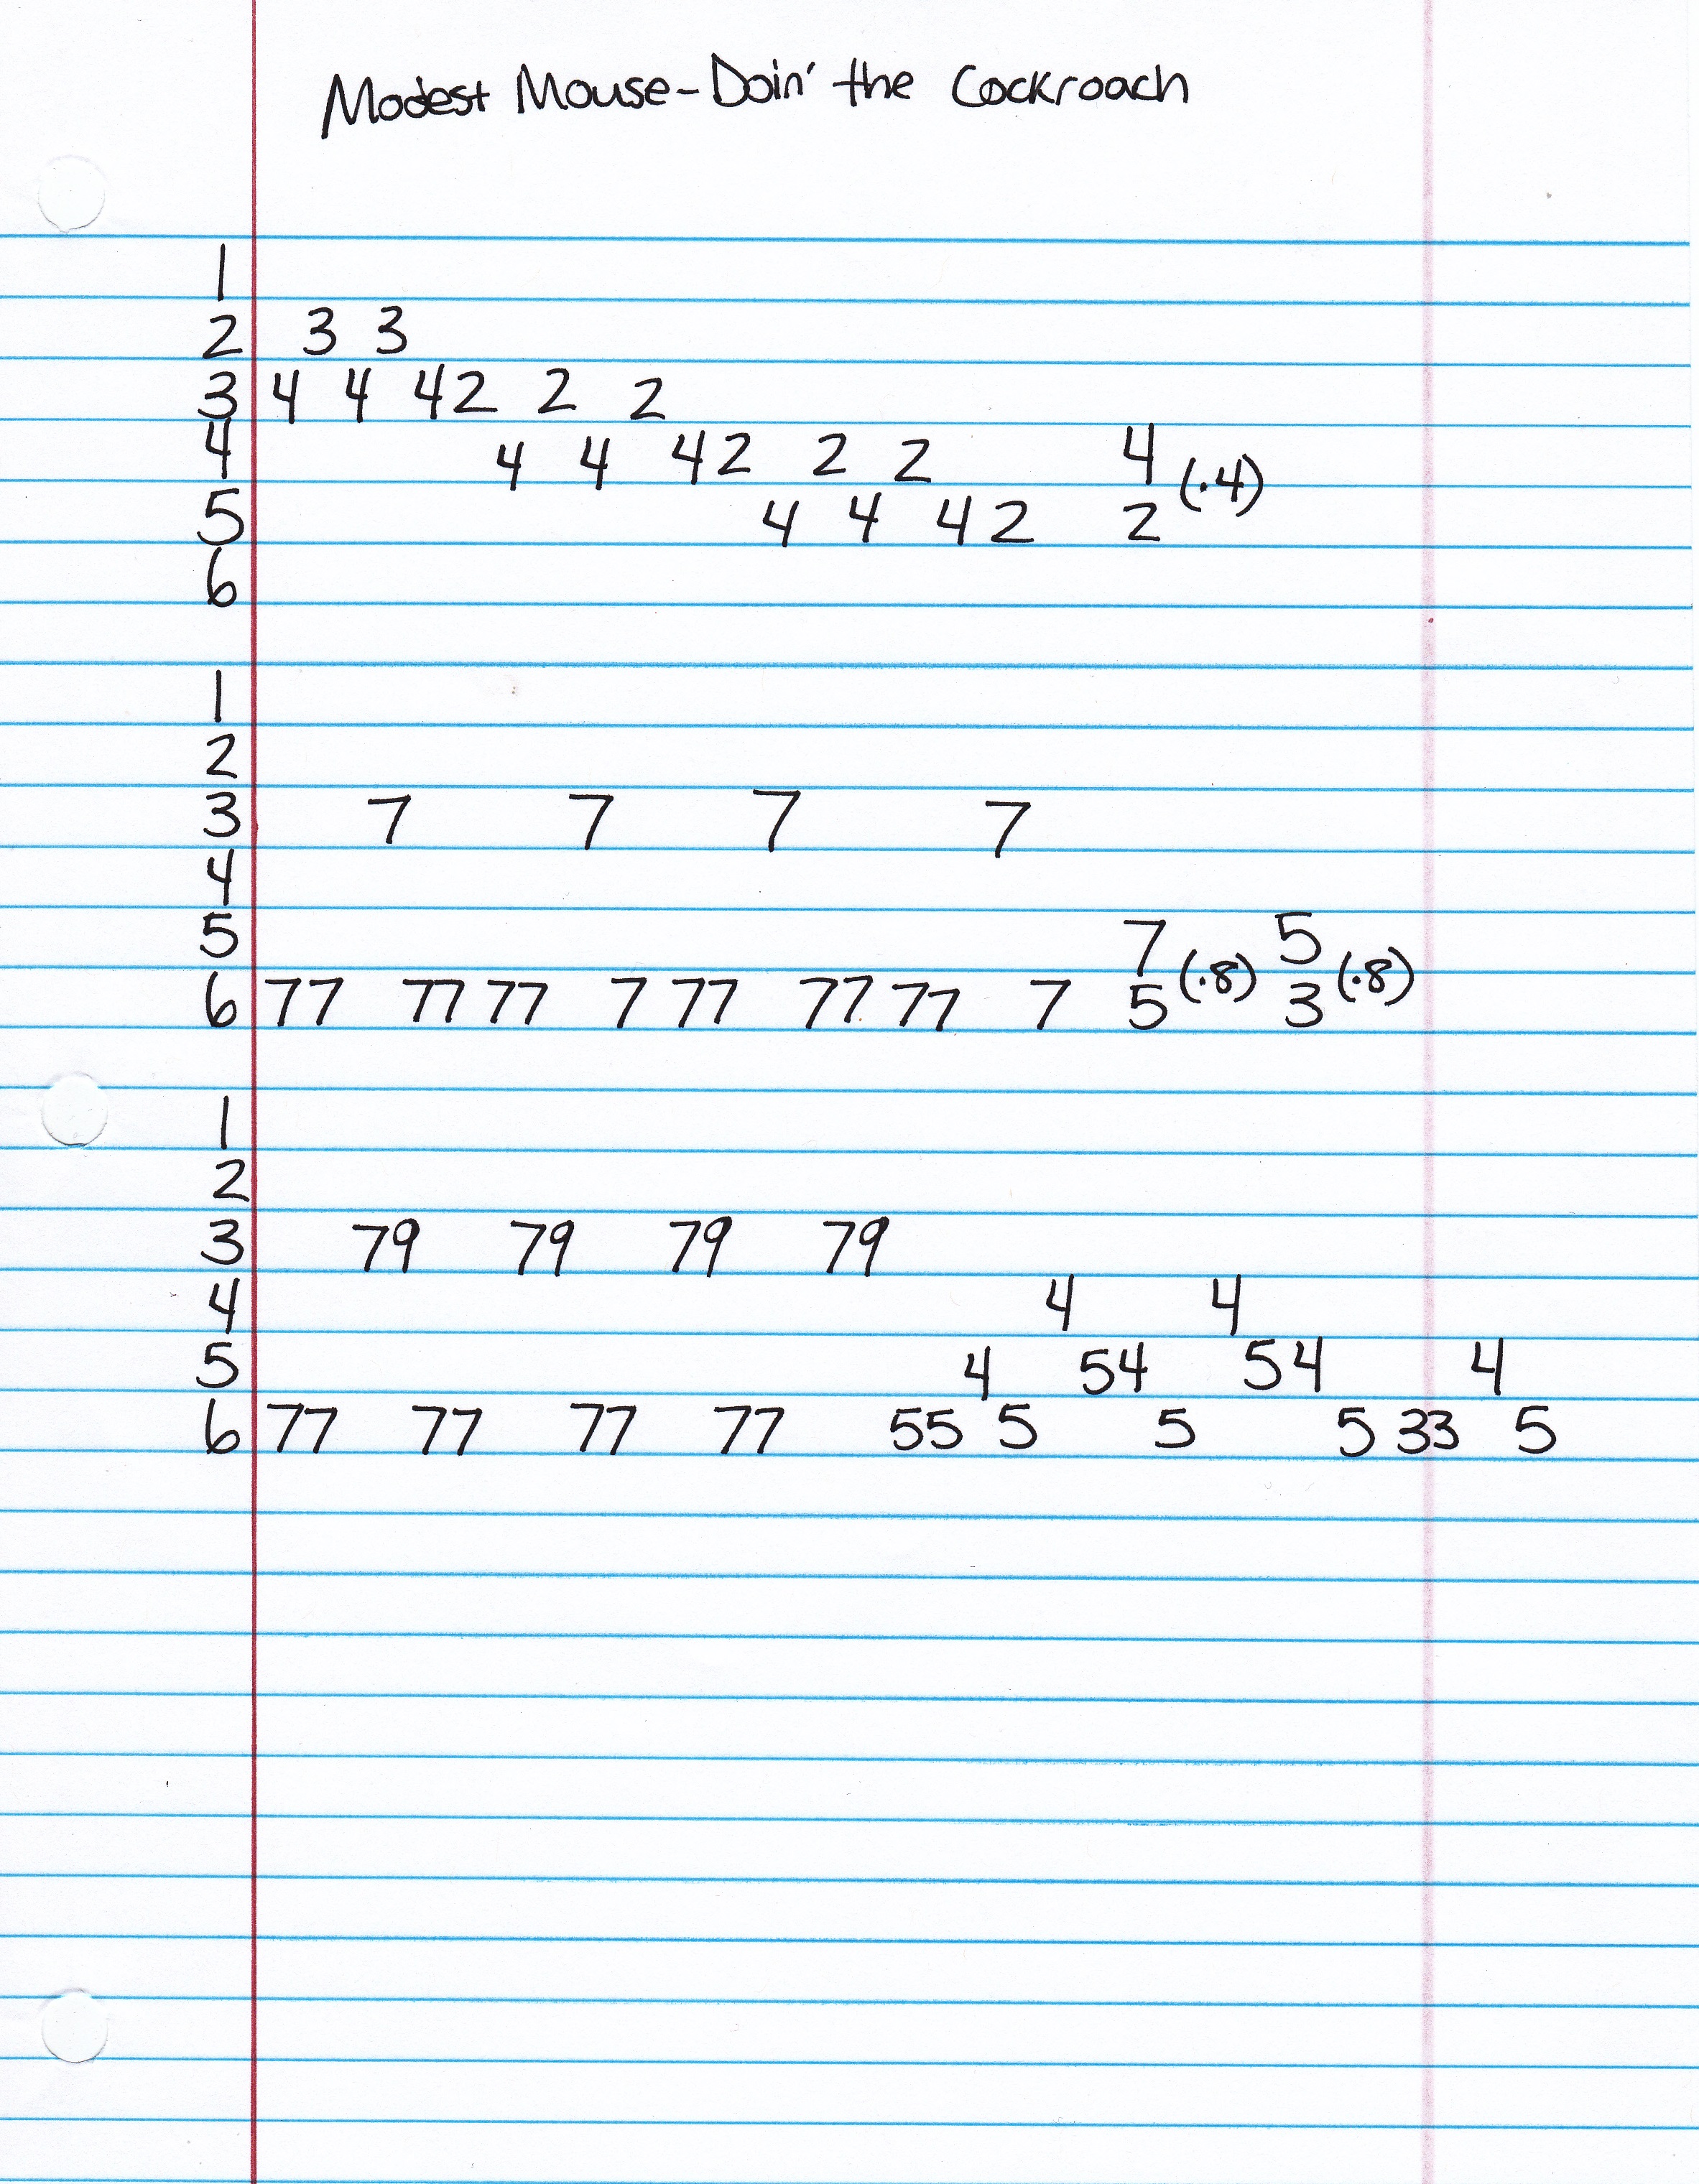 Modest Mouse-Doin' the Cockroach
1
2 3 3
3 4 4 42 2 2
4 4 4 42 2 2 4
5 4 4 42 2 (.4)
6
1
2
3 7 7 7 7
4
5 7 5
6 77 77 77 7 77 77 77 7 5 (.8) 3 (.8)
1
2
3 79 79 79 79
4 4 4
5 4 54 54 4
6 77 77 77 77 55 5 5 5 33 5